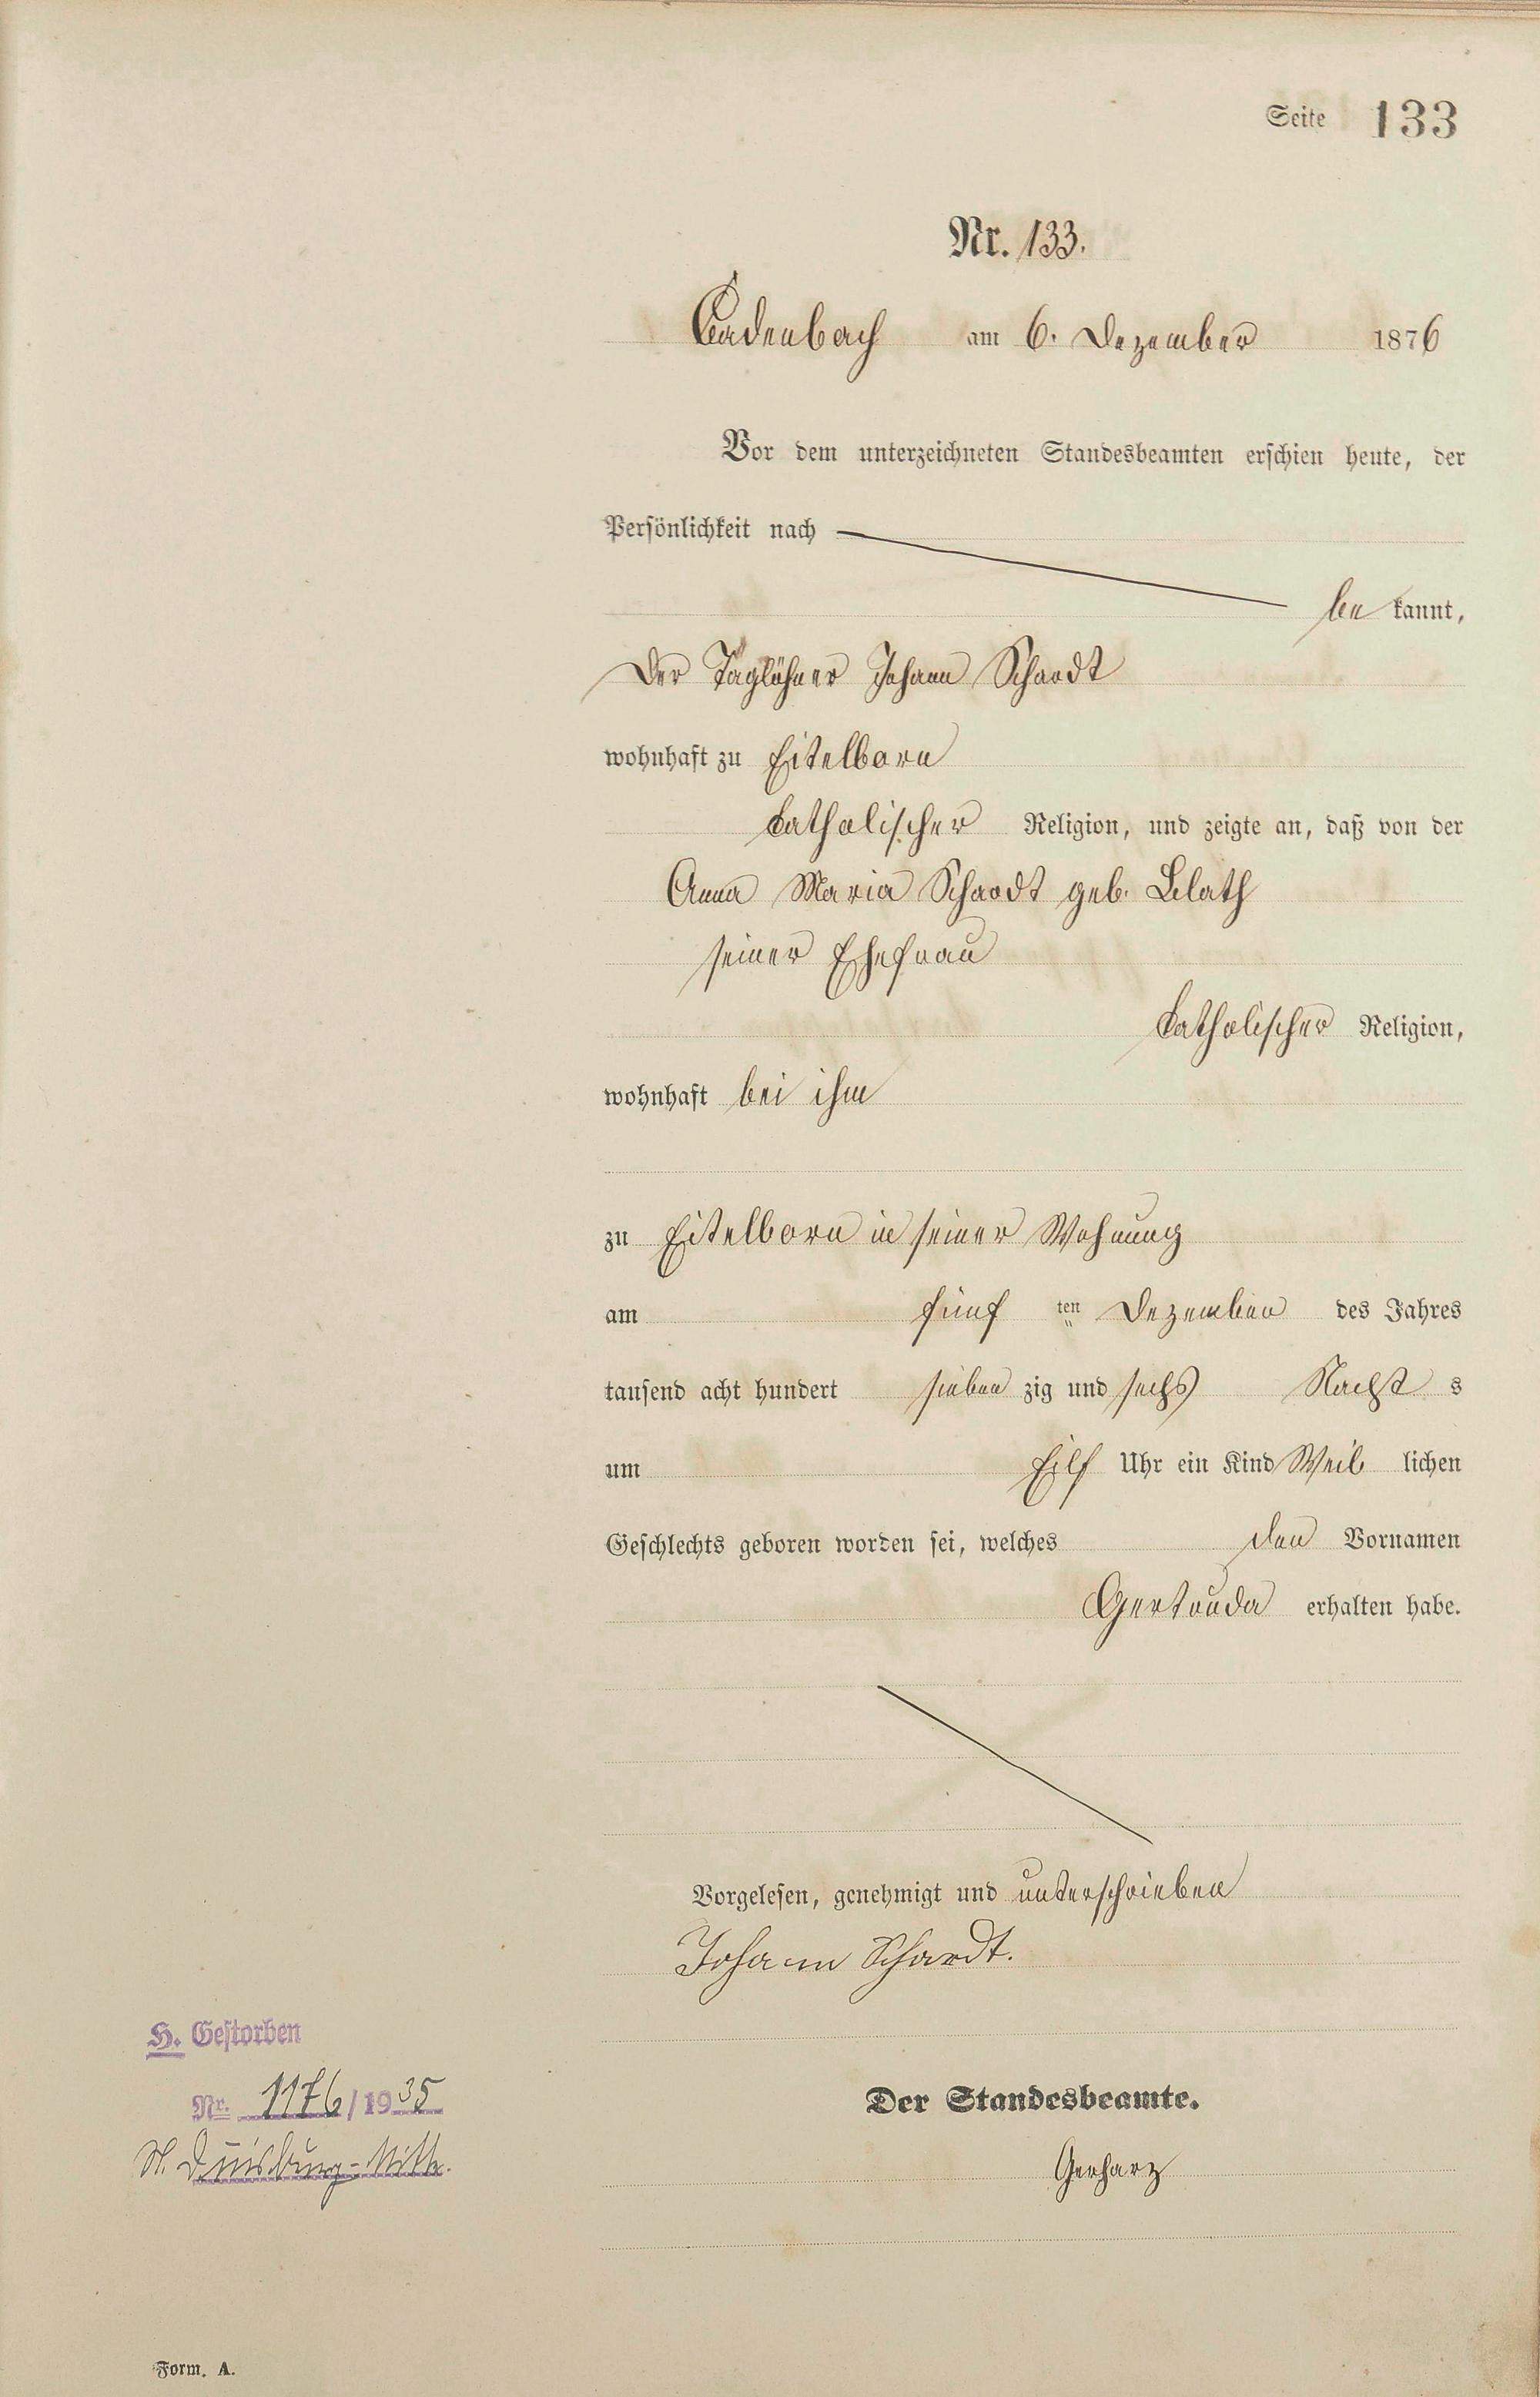 Seite 133
Nr. 133.
Cadenbach am 6. Dezember 1876
Vor dem unterzeichneten Standesbeamten erschien heute, der
Persönlichkeit nach
be kannt,
der Taglöhner Johann Schardt
wohnhaft zu Eitelborn
katholischer Religion, und zeigte an, daß von der
Anna Maria Schardt geb.
seiner Ehefrau
katholischer Religion,
wohnhaft bei ihm
zu Eitelborn in seiner Wohnung
am fünf ten Dezember des Jahres
tausend acht hundert sieben zig und sechs Nacht s
um Eilf Uhr ein Kind Weib lichen
Geschlechts geboren worden sei, welches den Vornamen
Gertruda erhalten habe.
Vorgelesen, genehmigt und unterschrieben
Johann Schardt.
H. Gestorben
Nr. 1176/1935
St. Duisburg-Mitte.
Der Standesbeamte.
Gerharz
Form. A.